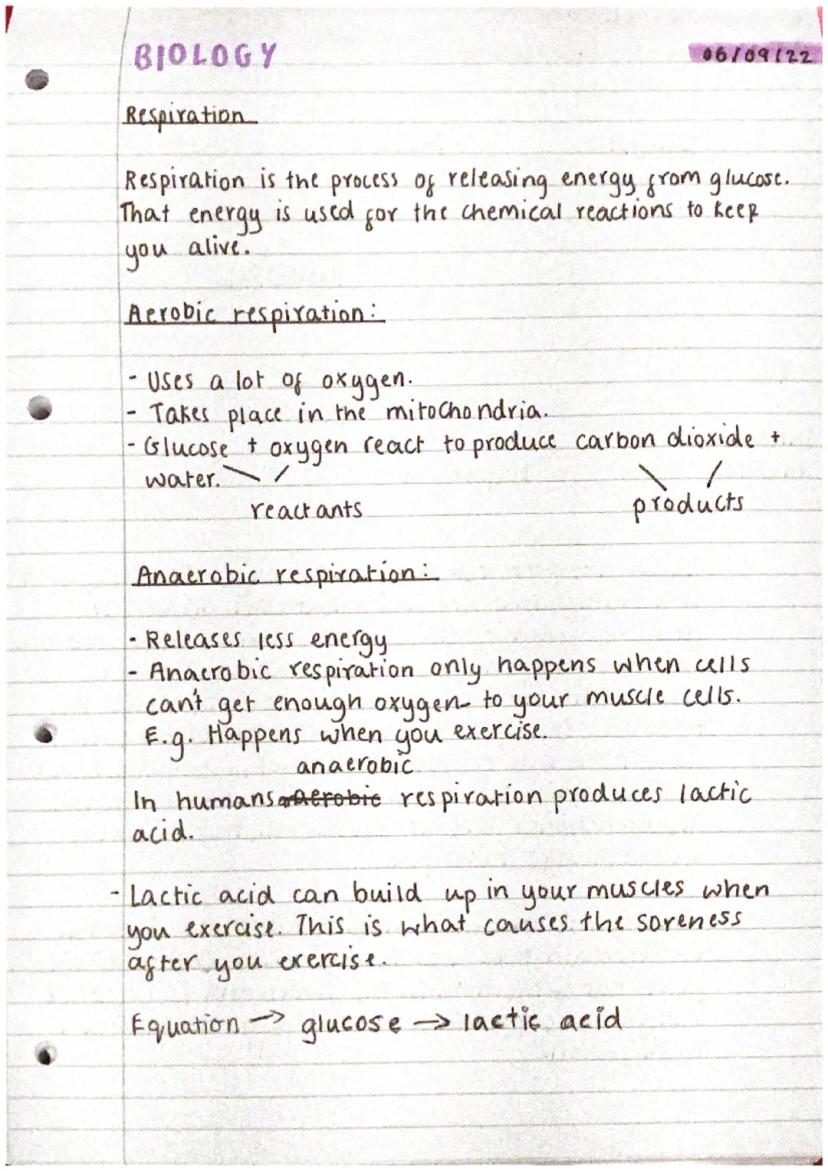 BIOLOGY
06/09/22
Respiration
Respiration is the process of releasing energy from glucose.
That energy is used for the chemical reactions to keep
you alive.
Aerobic respiration:
- Uses a lot of oxygen.
- Takes place in the mitochondria.
- Glucose + oxygen react to produce carbon dioxide +
water.
reactants
products
Anaerobic respiration:
- Releases less energy
- Anaerobic respiration only happens when cells
can't get enough oxygen to your muscle cells.
E.g. Happens when you exercise.
anaerobic
In humans aerobic respiration produces lactic
acid.
- Lactic acid can build up in your muscles when
you exercise. This is what causes the soreness
after you exercise.
Equation → glucose → lactic acid